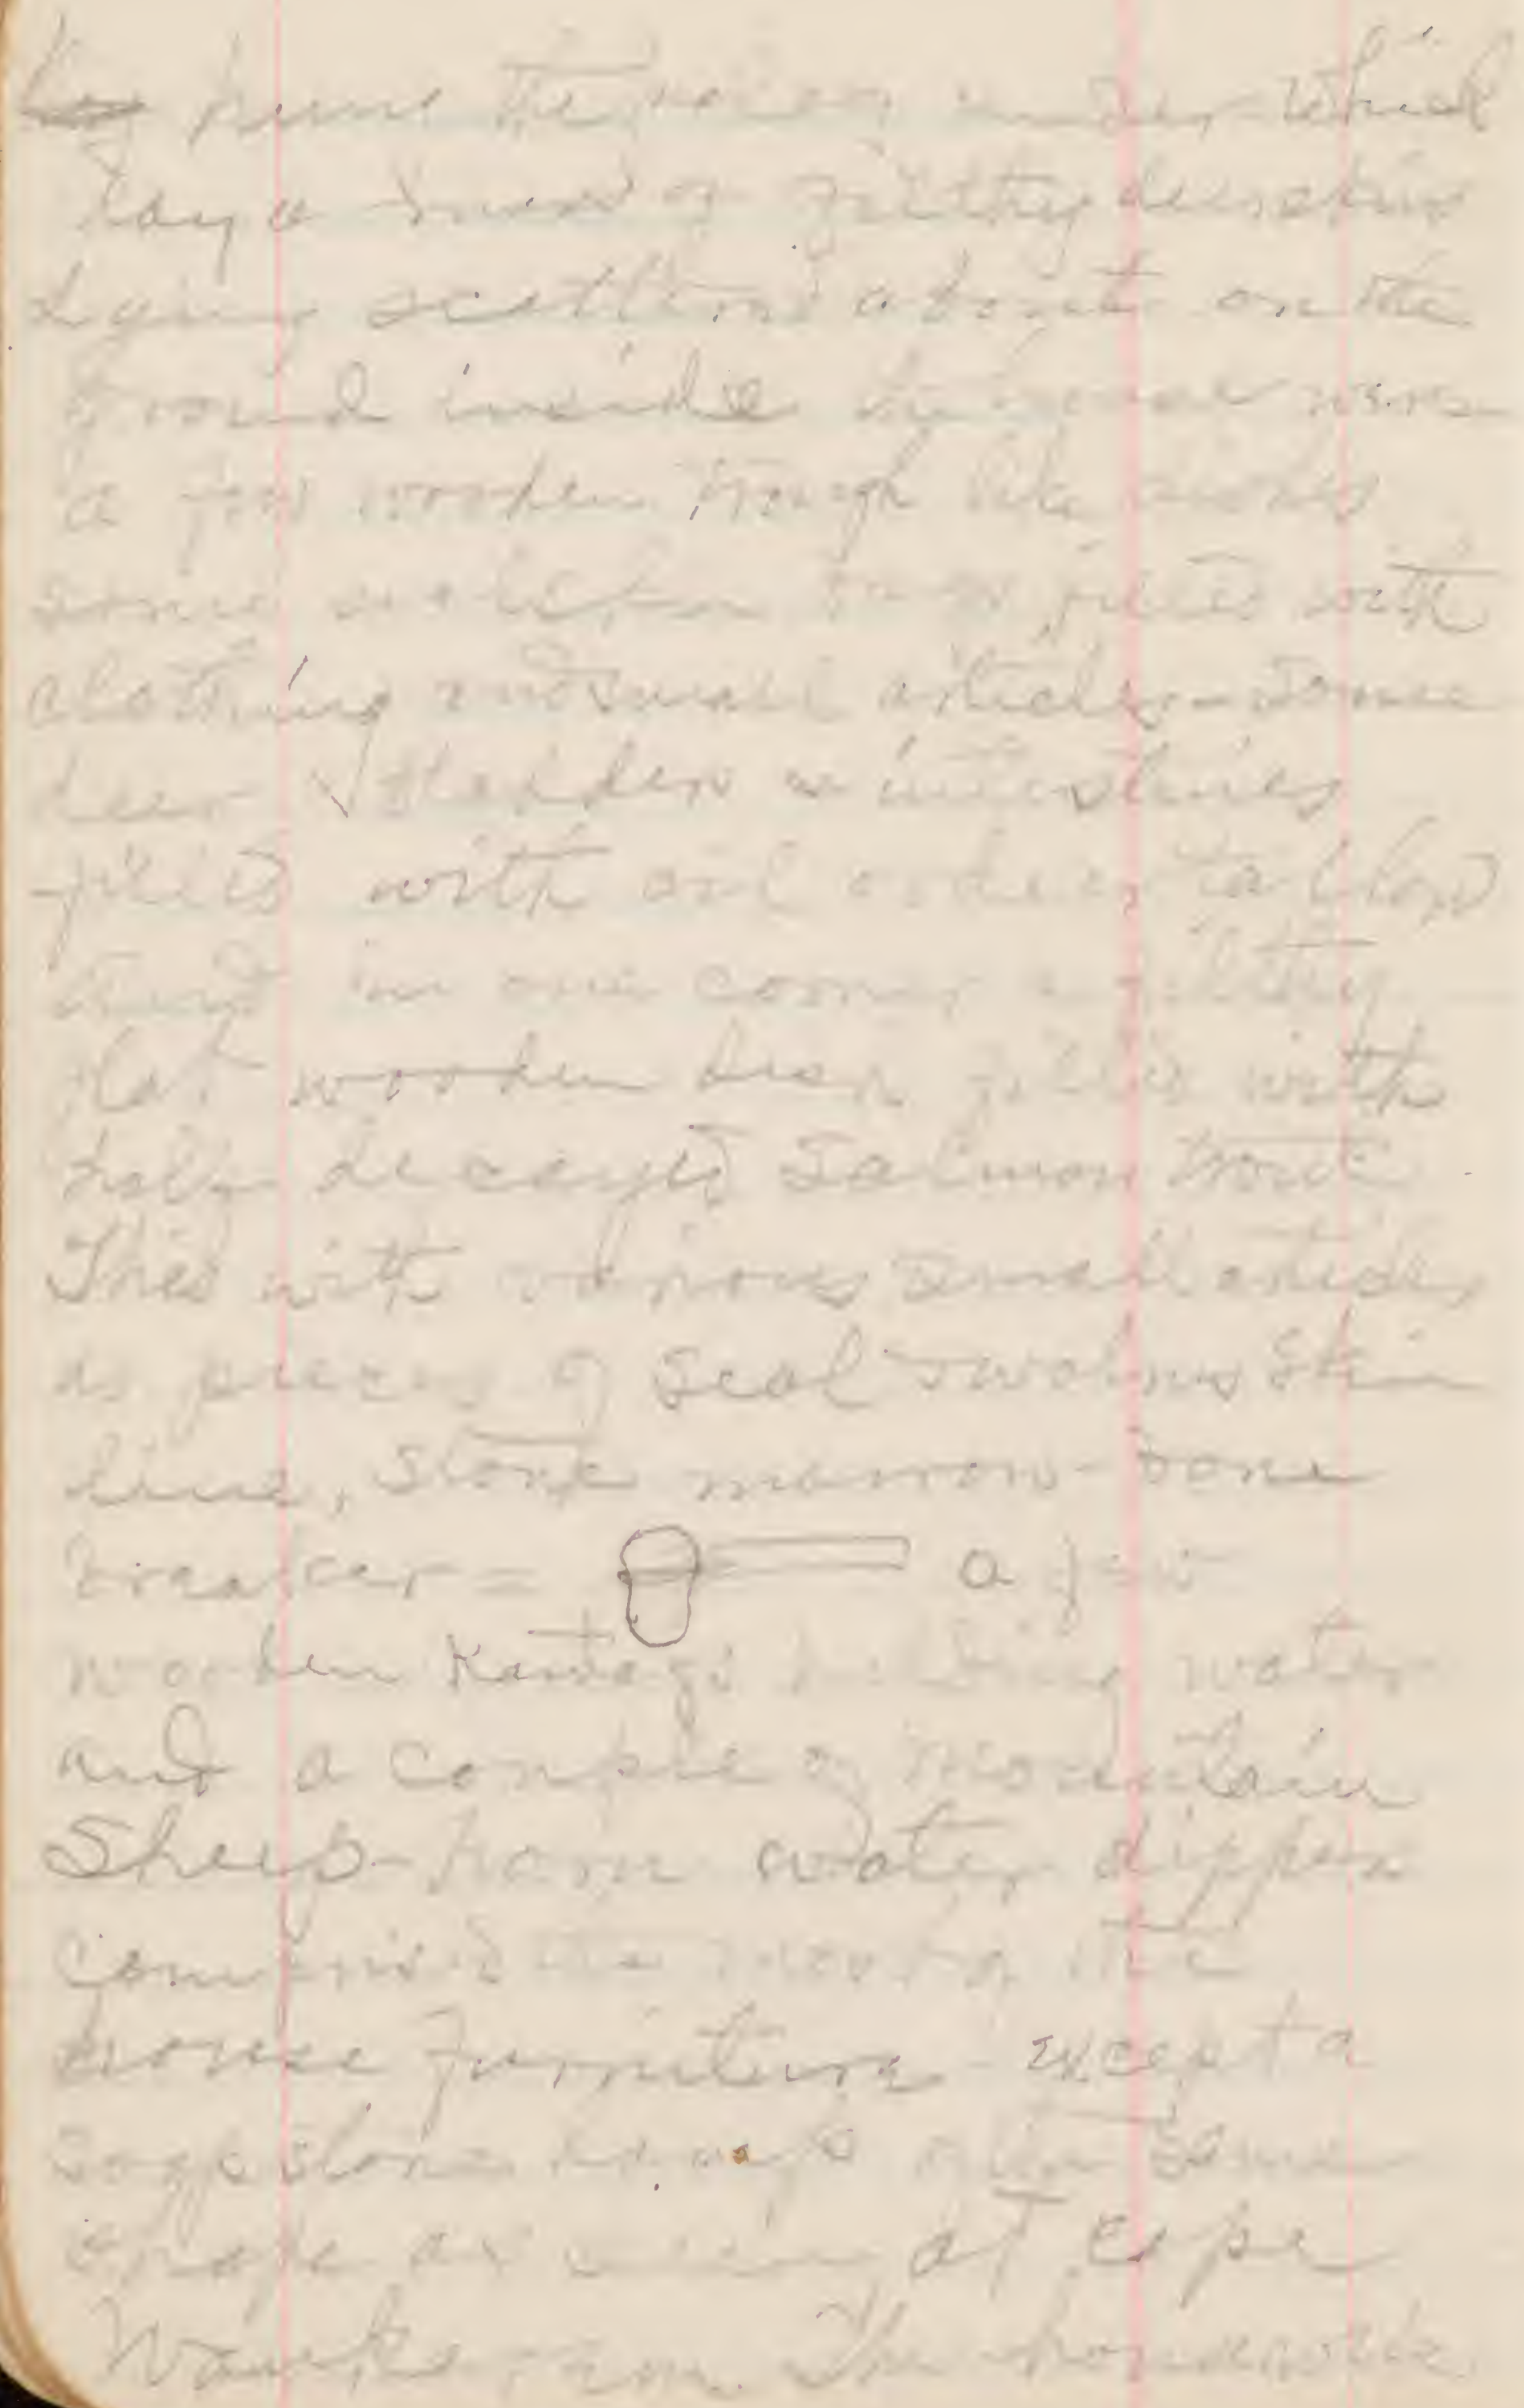 hung the noisy under which
lay a mess of filthy deerskins
Lying scattered about on the
ground inside the house were
a few wooden trough like dishes
some sealskin bags filled with
clothing and small articles - some
deer bladders & intestines
filled with oil or deer ta blood
and in one corner a filthy
flat wooden dish filled with
half decayed Salmon trout
This with various small articles
as pieces of Seal & walrus Skin
line, Stone marrow-bone
breaker = a few
wooden Kantags holding water
and a couple of mountain
Sheep-horn water dippers
comprised the most of the
house furniture - except a
soapstone lamp of the same
shape as seen at Cape
Wankarem. The housewife